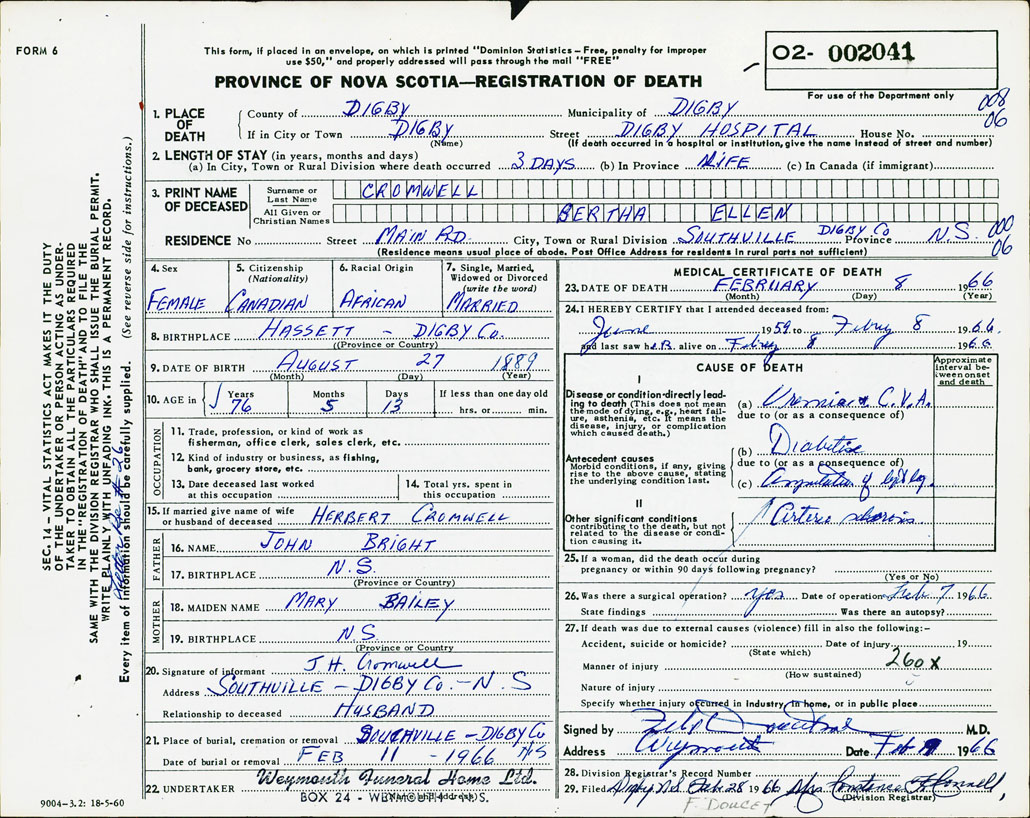 FORM 6
This form, if placed in an envelope, on which is printed "Dominion Statistics – Free, penalty for improper
use $50," and properly addressed will pass through the mail "FREE"
O2- 002041
PROVINCE OF NOVA SCOTIA—REGISTRATION OF DEATH
For use of the Department only
008
06
1. PLACE OF DEATH
County of DIGBY Municipality of DIGBY
If in City or Town DIGBY Street DIGBY HOSPITAL House No.
(Name) (If death occurred in a hospital or institution, give the name instead of street and number)
2. LENGTH OF STAY (in years, months and days)
(a) In City, Town or Rural Division where death occurred 3 DAYS (b) In Province LIFE (c) In Canada (if immigrant)
3. PRINT NAME OF DECEASED
Surname or Last Name CROMWELL
All Given or Christian Names BERTHA ELLEN
RESIDENCE No Street MAIN RD. City, Town or Rural Division SOUTHVILLE DIGBY Co Province N.S.
000
06
(Residence means usual place of abode. Post Office Address for residents in rural parts not sufficient)
4. Sex
FEMALE
5. Citizenship (Nationality)
CANADIAN
6. Racial Origin
AFRICAN
7. Single, Married, Widowed or Divorced (write the word)
MARRIED
8. BIRTHPLACE HASSETT – DIGBY Co.
(Province or Country)
9. DATE OF BIRTH AUGUST 27 1889
(Month) (Day) (Year)
10. AGE in
Years Months Days If less than one day old
76 5 13 hrs. or min.
OCCUPATION
11. Trade, profession, or kind of work as
fisherman, office clerk, sales clerk, etc.
12. Kind of industry or business, as fishing,
bank, grocery store, etc.
13. Date deceased last worked
at this occupation
14. Total yrs. spent in
this occupation
15. If married give name of wife
or husband of deceased HERBERT CROMWELL
FATHER
16. NAME JOHN BRIGHT
17. BIRTHPLACE N.S.
(Province or Country)
MOTHER
18. MAIDEN NAME MARY BAILEY
19. BIRTHPLACE N.S.
(Province or Country)
20. Signature of informant J.H. Cromwell
Address SOUTHVILLE – DIGBY Co. – N.S
Relationship to deceased HUSBAND
21. Place of burial, cremation or removal SOUTHVILLE – DIGBY Co
N/S
Date of burial or removal FEB 11 - 1966
22. UNDERTAKER Weymouth Funeral Home Ltd.
(Name and address)
BOX 24 - WEYMOUTH, N.S.
MEDICAL CERTIFICATE OF DEATH
23. DATE OF DEATH FEBRUARY 8 1966
(Month) (Day) (Year)
24. I HEREBY CERTIFY that I attended deceased from:
June 1959 to Febry 8 1966.
and last saw her alive on Febry 8 1966
CAUSE OF DEATH
Approximate interval between onset and death
I
Disease or condition directly leading to death (This does not mean the mode of dying, e.g., heart failure, asthenia, etc. It means the disease, injury, or complication which caused death.)
(a) Uremia & C.V.A.
due to (or as a consequence of)
Antecedent causes
Morbid conditions, if any, giving rise to the above cause, stating the underlying condition last.
(b) Diabetise
due to (or as a consequence of)
(c) Amputation of left leg.
II
Other significant conditions
contributing to the death, but not related to the disease or condition causing it.
Arterio sclerosis
25. If a woman, did the death occur during
pregnancy or within 90 days following pregnancy?
(Yes or No)
26. Was there a surgical operation? yes Date of operation Feb 7 1966
State findings Was there an autopsy?
27. If death was due to external causes (violence) fill in also the following:–
Accident, suicide or homicide? Date of injury 19
(State which)
Manner of injury 260 X
(How sustained)
Nature of injury
Specify whether injury occurred in industry in home, or in public place
Signed by M.D.
Address Weymouth Date Feb 1966
28. Division Registrar's Record Number
29. Filed Digby NS Feb 28 1966 Mrs Constance
(Division Registrar)
F. DOUCET
SEC. 14 – VITAL STATISTICS ACT MAKES IT THE DUTY
OF THE UNDERTAKER OR PERSON ACTING AS UNDER-
TAKER TO OBTAIN ALL THE PARTICULARS REQUIRED
IN THE "REGISTRATION OF DEATH" AND TO FILE THE
SAME WITH THE DIVISION REGISTRAR WHO SHALL ISSUE THE BURIAL PERMIT.
WRITE PLAINLY WITH UNFADING INK. THIS IS A PERMANENT RECORD.
Every item of information should be carefully supplied. (See reverse side for instructions.)
9004–3.2: 18-5-60